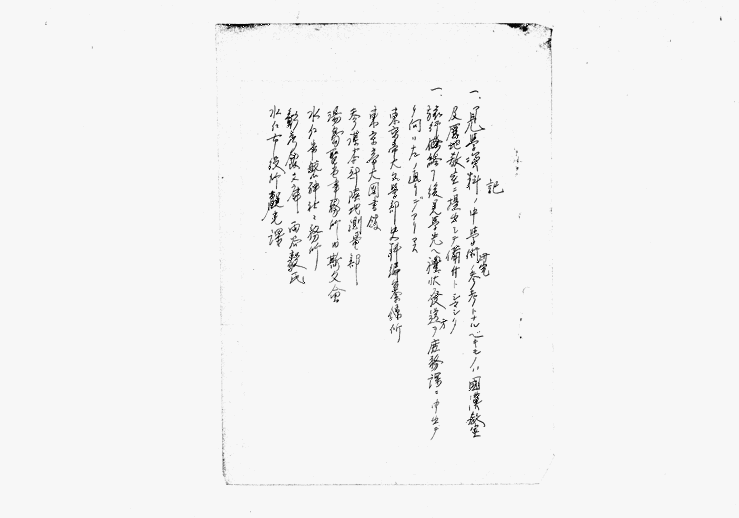 記
一、見學資料ノ中學術研究ノ參考トナルベキモノハ國漢教室
及歴地教室ニ提出シテ備付トシマシタ
一、旅行終了後見學先ヘ禮状發送方ヲ庶務課ニ申出テ
左ノ通リデアリマス
東京帝大文學部史料編纂掛所
東京帝大図書館
參謀本部陸地測量部
湯島聖堂事務所内斯文會
水戸常盤神社々務所
彰考館文庫 雨谷毅氏
水戸市役所觀光課